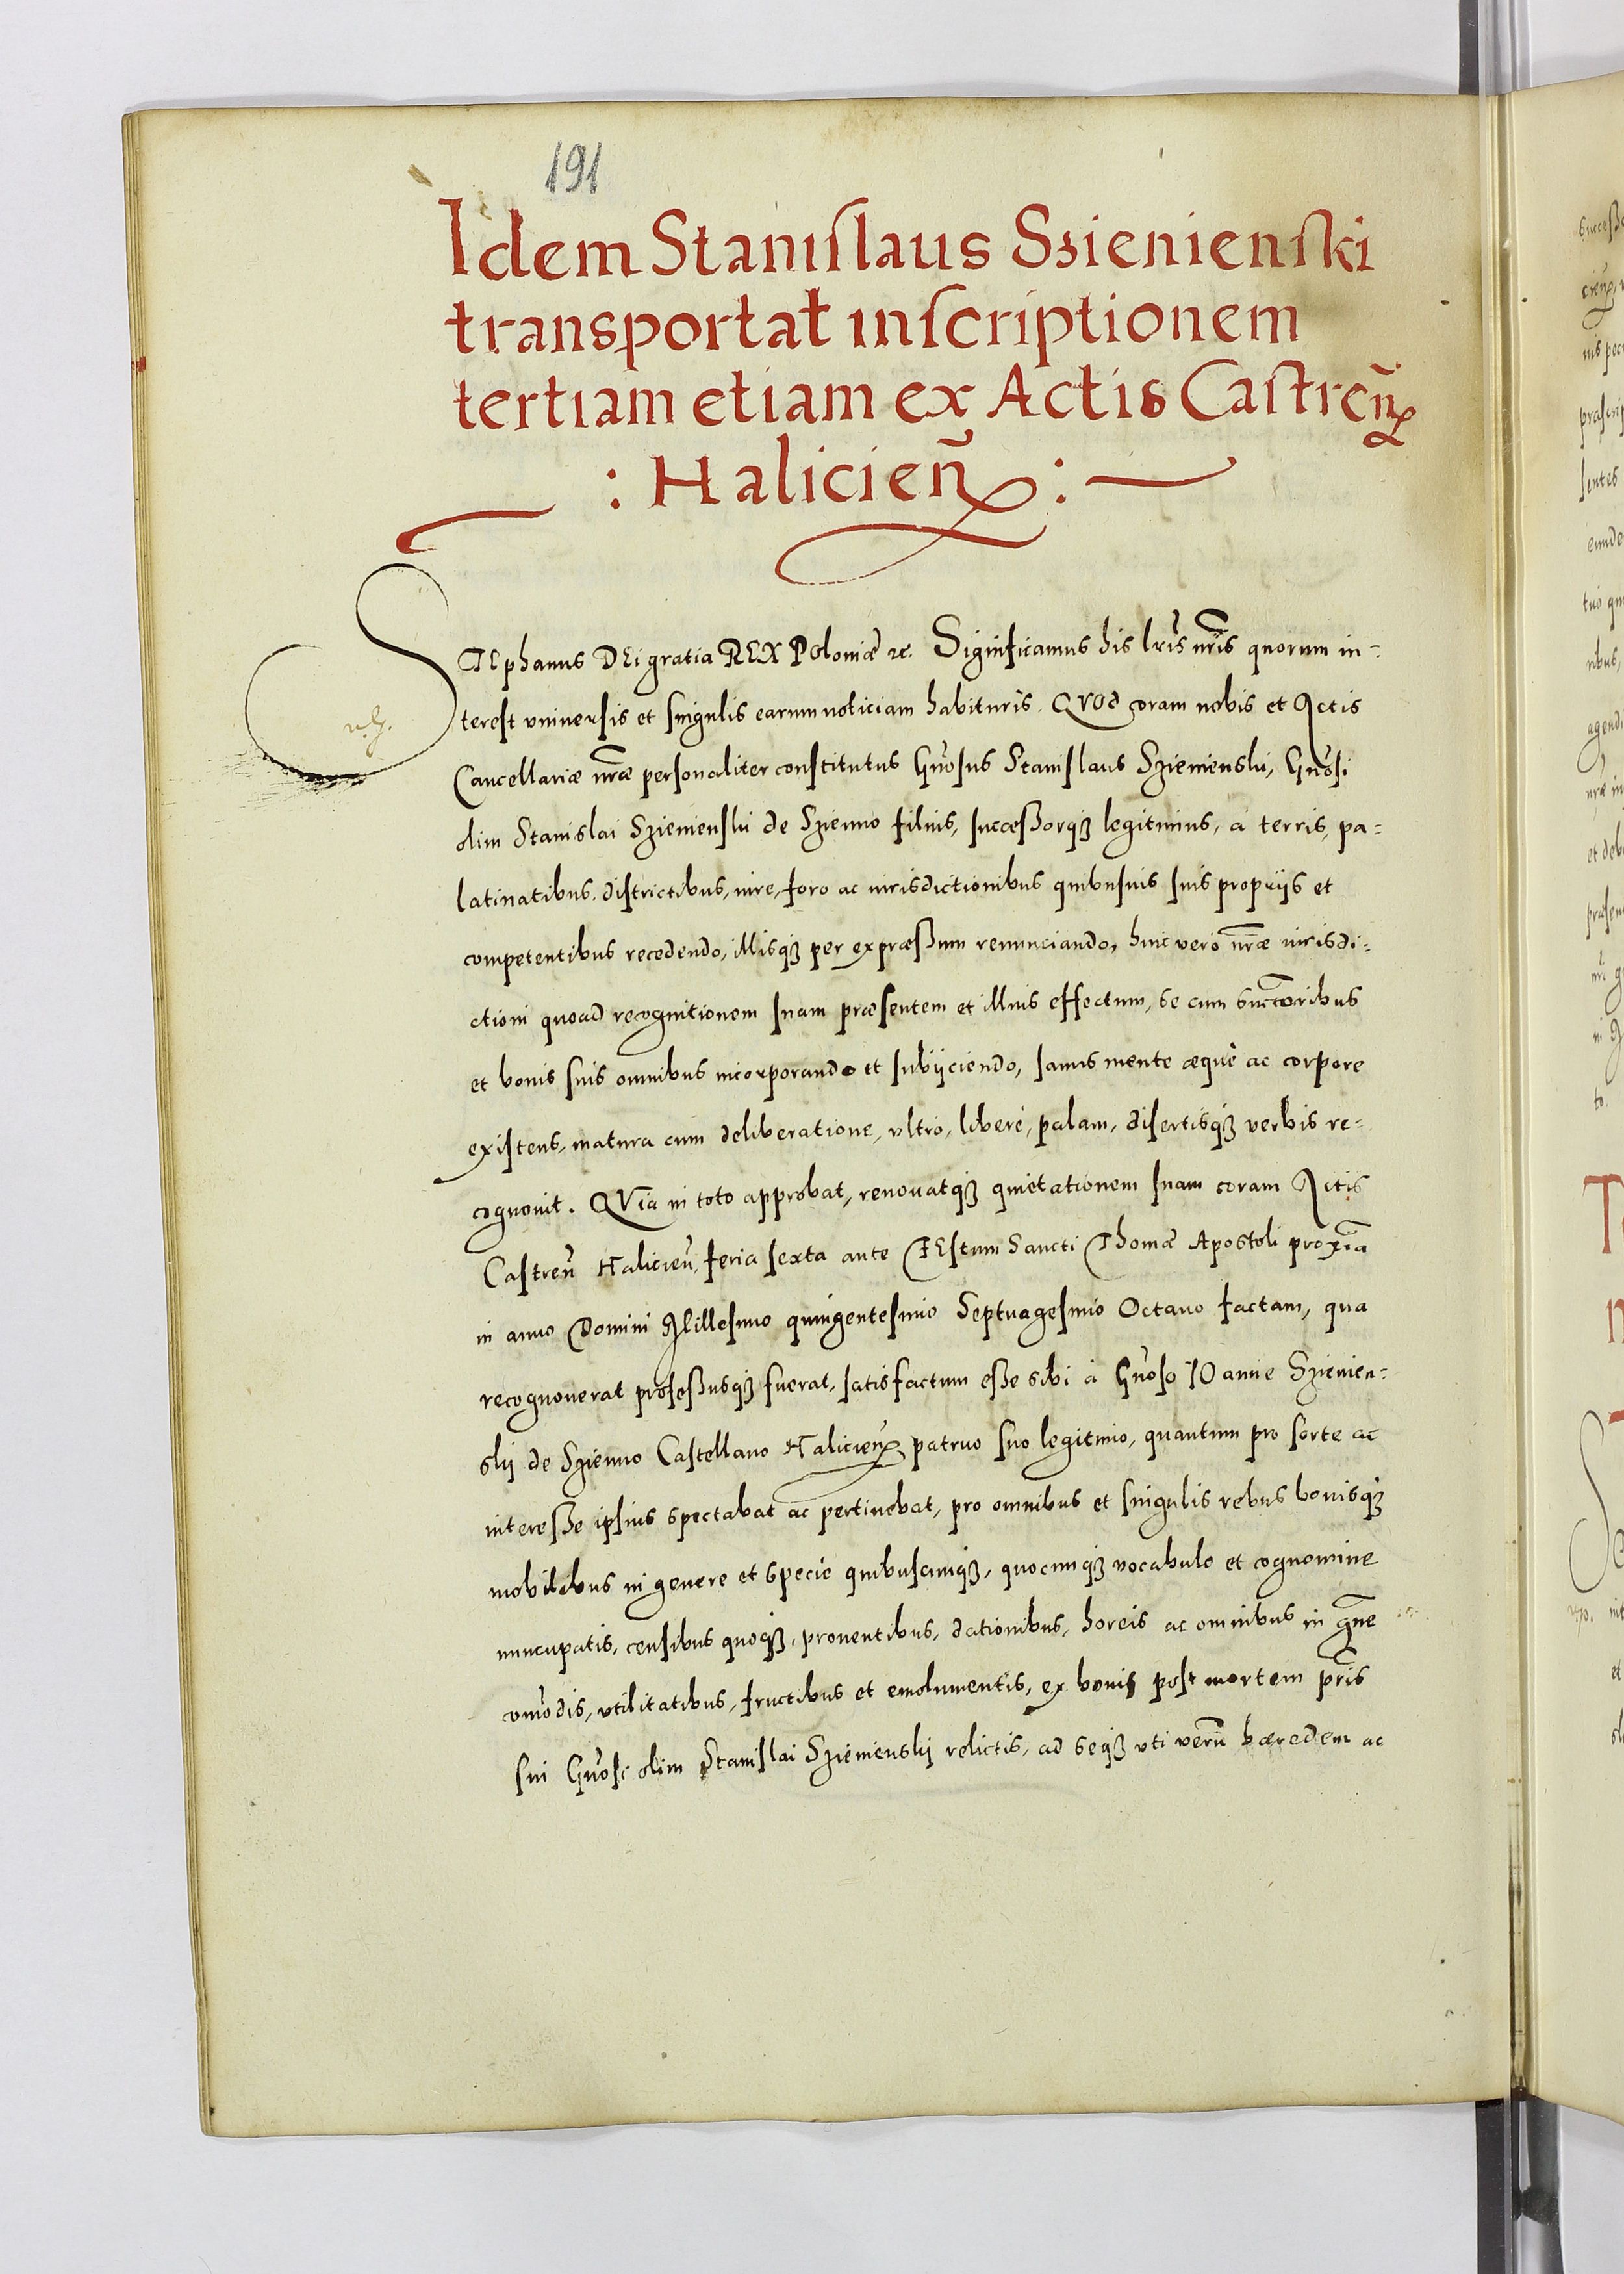 191
Idem Stanislaus Szienienski
transportat inscriptionem
tertiam etiam ex Actis Castreñ
: Halicieñ :
STEphanus DEi gratia REX Poloniæ etc. Significamus his lr̃is nr̃is quorum in=
terest vniuersis et singulis earum noticiam habituris. QVOd coram nobis et Actis
Cancellariæ nr̃æ personaliter constitutus Gñosus Stanislaus Szienienski, Gñosi
olim Stanislai Szienienskii de Szienno filius, successorq₃ legitimus, a terris, pa=
latinatibus, districtibus, iure, foro ac iurisdictionibus quibusuis suis proprijs et
competentibus recedendo, illisq₃ per expræssum renunciando, huic vero nr̃æ iurisdi=
ctioni quoad recognitionem suam præsentem et illius effectum, se cum succtoribus
et bonis suis omnibus incorporando et subijciendo, sanus mente æque ac corpore
existens, matura cum deliberatione, vltro, libere, palam, disertisq₃ verbis re=
cognouit. QVia in toto approbat, renouatq₃ quietationem suam coram Actis
Castreñ Halicieñ, feria sexta ante FEstum Sancti Thomæ Apostoli proxĩa
in anno Domini Millesimo quingentesimo Septuagesimo Octauo factam, qua
recognouerat professusq₃ fuerat, satisfactum esse sibi a Gñoso IOanne Szienien=
skij de Szienno Castellano Halicieñ patruo suo legitimo, quantum pro sorte ac
interesse ipsius spectabat ac pertinebat, pro omnibus et singulis rebus bonisq₃
mobilibus in genere et specie quibuscunq₃, quocunq₃ vocabulo et cognomine
nuncupatis, censibus quoq₃, prouentibus, dationibus, horeis ac omnibus in gñe
com̃odis, vtilitatibus, fructibus et emolumentis, ex bonis post mortem pr̃is
sui Gñosi olim Stanislai Szienienskij relictis, ad seq₃ vti verũ hæredem ac